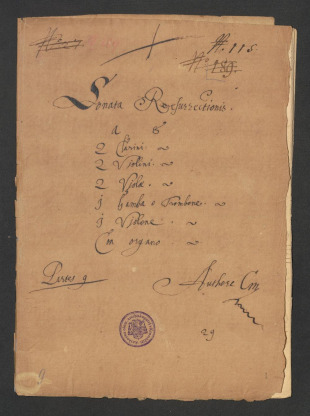 No. 115.
No. 189.
Sonata Resurrectionis.
a 8
2 Clarini.
2 Violini.
2 Violæ.
1 Gamba o Trombone.
1 Violone.
Con organo
Partes 9
Authore Cm
29
9